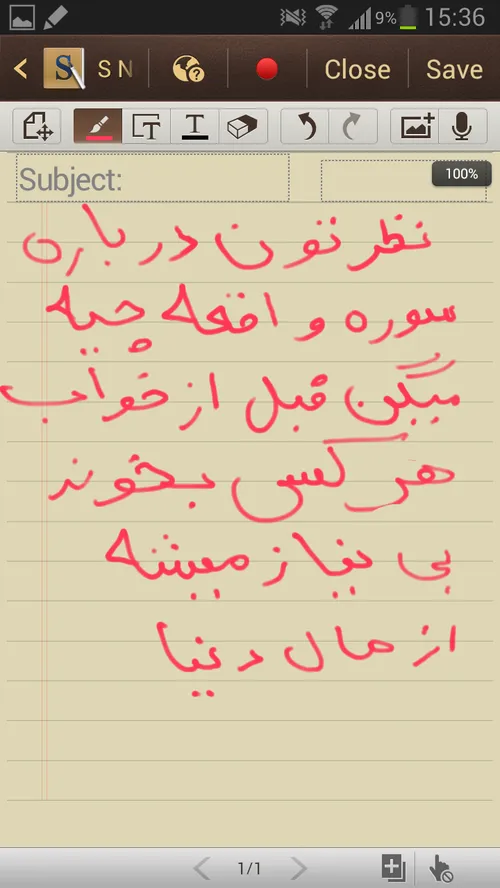 9% 15:36
S N Close Save
T T
Subject: 100%
نظرتون درباره
سوره واقعه چیه
میگن قبل از خواب
هر کس بخوند
بی نیاز میشه
از مال دنیا
1/1